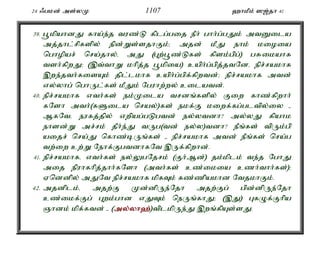 24 ஃபமன் அள்லமு 1107 ஹாமீம் ஸஜ்தா 41
39. பூமியானது காய்ந்த வரண்டு கிடப்பதை நீர் பார்ப்பதும் அவனுடைய
அத்தாட்சிகளில் நின்றுள்ளதாகும்; அதன் மீது நாம் மழையை
பொழியச் செய்தால், அது (புற்பூண்டுகள் கிளம்பிப்) பசுமையாக
வளர்கிறது; (இவ்வாறு மரித்த பூமியை) உயிர்ப்பித்தவனே, நிச்சயமாக
இறந்தவர்களையும் திட்டமாக உயிர்ப்பிக்கிறவன்; நிச்சயமாக அவன்
எல்லாப் பொருட்கள் மீதும் பேராற்றல் உடையவன்.
40. நிச்சயமாக எவர்கள் நம்முடைய வசனங்களில் குறை காண்கிறார்
களோ அவர்(களுடைய செயல்)கள் நமக்கு மறைக்கப்படவில்லை -
ஆகவே, நரகத்தில் எறியப்படுபவன் நல்லவனா? அல்லது கியாம
நாளன்று அச்சம் தீர்ந்து வருப(வன் நல்ல)வனா? நீங்கள் விரும்பி
யதைச் செய்து கொண்டிருங்கள் - நிச்சயமாக அவன் நீங்கள் செய்ப
வற்றை உற்று நோக்குபவனாகவே இருக்கிறான்.
41. நிச்சயமாக, எவர்கள் நல்லுபதேசம் (குர்ஆன்) தம்மிடம் வந்த போது
அதை நிராகரித்தார்களோ (அவர்கள் உண்மையை உணர்வார்கள்);
ஏனெனில் அதுவே நிச்சயமாக மிகவும் கண்ணியமான வேதமாகும்.
42. அதனிடம், அதற்கு முன்னிருந்தோ அதற்குப் பின்னிருந்தோ
உண்மைக்குப் புறம்பான எதுவும் நெருங்காது; (இது) புகழுக்குரிய
ஞானம் மிக்கவன் - (அல்லாஹ்)விடமிருந்து இறங்கியுள்ளது.